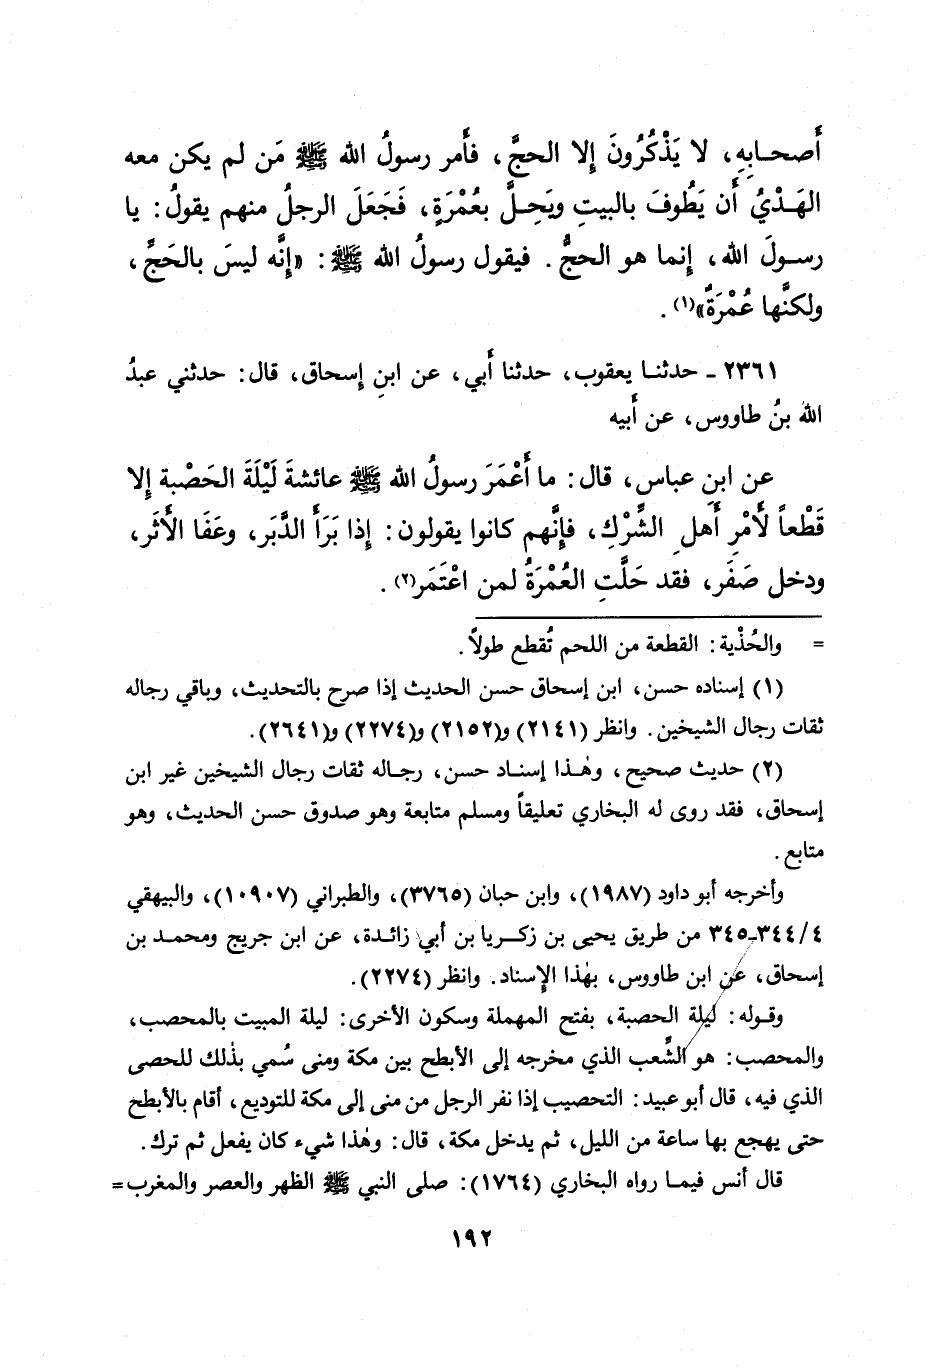 أَصحـابِهِ، لا يَذْكُرُونَ إِلا الحجَّ، فأَمر رسولُ الله ﷺ مَن لم يكن معه
الهَـدْيُ أَن يَطُوفَ بالبيتِ ويَحِـلَّ بعُمْرَةٍ، فَجَعَلَ الرجلُ منهم يقولُ: يا
رسـولَ الله، إِنما هو الحجُّ. فيقول رسولُ الله ﷺ: «إِنَّه ليسَ بالحَجِّ،
ولكنَّها عُمْرَةٌ»(١).
٢٣٦١ ـ حدثنـا يعقوب، حدثنا أَبي، عن ابنِ إِسحاق، قال: حدثني عبدُ
الله بنُ طاووس، عن أَبيه
عن ابنِ عباس، قال: ما أَعْمَرَ رسولُ الله ﷺ عائشةَ لَيْلَةَ الحَصْبة إِلا
قَطْعاً لأَمْرِ أَهلِ الشِّرْكِ، فإِنَّهم كانوا يقولون: إِذا بَرَأَ الدَّبَر، وعَفَا الأَثَر،
ودخل صَفَر، فقد حَلَّتِ العُمْرَةُ لمن اعْتَمَر(٢).
= والحُذْية: القطعة من اللحم تُقطع طولاً.
(١) إسناده حسن، ابن إسحاق حسن الحديث إذا صرح بالتحديث، وباقي رجاله
ثقات رجال الشيخين. وانظر (٢١٤١) و(٢١٥٢) و(٢٢٧٤) و(٢٦٤١).
(٢) حديث صحيح، وهٰـذا إسنـاد حسن، رجـاله ثقات رجال الشيخين غير ابن
إسحاق، فقد روى له البخاري تعليقاً ومسلم متابعة وهو صدوق حسن الحديث، وهو
متابع.
وأخرجه أبو داود (١٩٨٧)، وابن حبان (٣٧٦٥)، والطبراني (١٠٩٠٧)، والبيهقي
٤/٣٤٤ـ٣٤٥ من طريق يحيى بن زكـريا بن أبي زائـدة، عن ابن جريج ومحمـد بن
إسحاق، عن ابن طاووس، بهٰذا الإسناد. وانظر (٢٢٧٤).
وقـوله: ليلة الحصبة، بفتح المهملة وسكون الأخرى: ليلة المبيت بالمحصب،
والمحصب: هو الشِّعب الذي مخرجه إلى الأبطح بين مكة ومنى سُمي بذٰلك للحصى
الذي فيه، قال أبو عبيد: التحصيب إذا نفر الرجل من منى إلى مكة للتوديع، أقام بالأبطح
حتى يهجع بها ساعة من الليل، ثم يدخل مكة، قال: وهٰذا شيء كان يفعل ثم ترك.
قال أنس فيمـا رواه البخاري (١٧٦٤): صلى النبي ﷺ الظهر والعصر والمغرب=
١٩٢